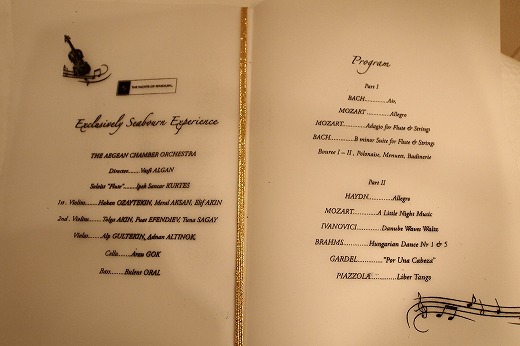 THE YACHTS OF SEABOURN
Exclusively Seabourn Experience
THE AEGEAN CHAMBER ORCHESTRA
Director......Vasfi ALGAN
Soloist "Flute"......Ipek Sancar KURTES
1st. Violins......Hakan OZAYTEKIN, Mersi AKSAN, Elif AKIN
2nd. Violins......Tolga AKIN, Fuat EFENDIEV, Tuna SAGAY
Violas......Alp GULTEKIN, Adnan ALTINOK.
Cello......Arzu GOK
Bass......Bulent ORAL
Program
Part I
BACH............Air,
MOZART............Allegro
MOZART............Adagio for Flute & Strings
BACH............B minor Suite for Flute & Strings
Bouree I – II , Polonaise, Menuett, Badinerie
Part II
HAYDN............Allegro
MOZART............A Little Night Music
IVANOVICI............Danube Waves Waltz
BRAHMS............Hungarian Dance Nr 1 & 5
GARDEL............"Por Una Cabeza"
PIAZZOLA............Liber Tango